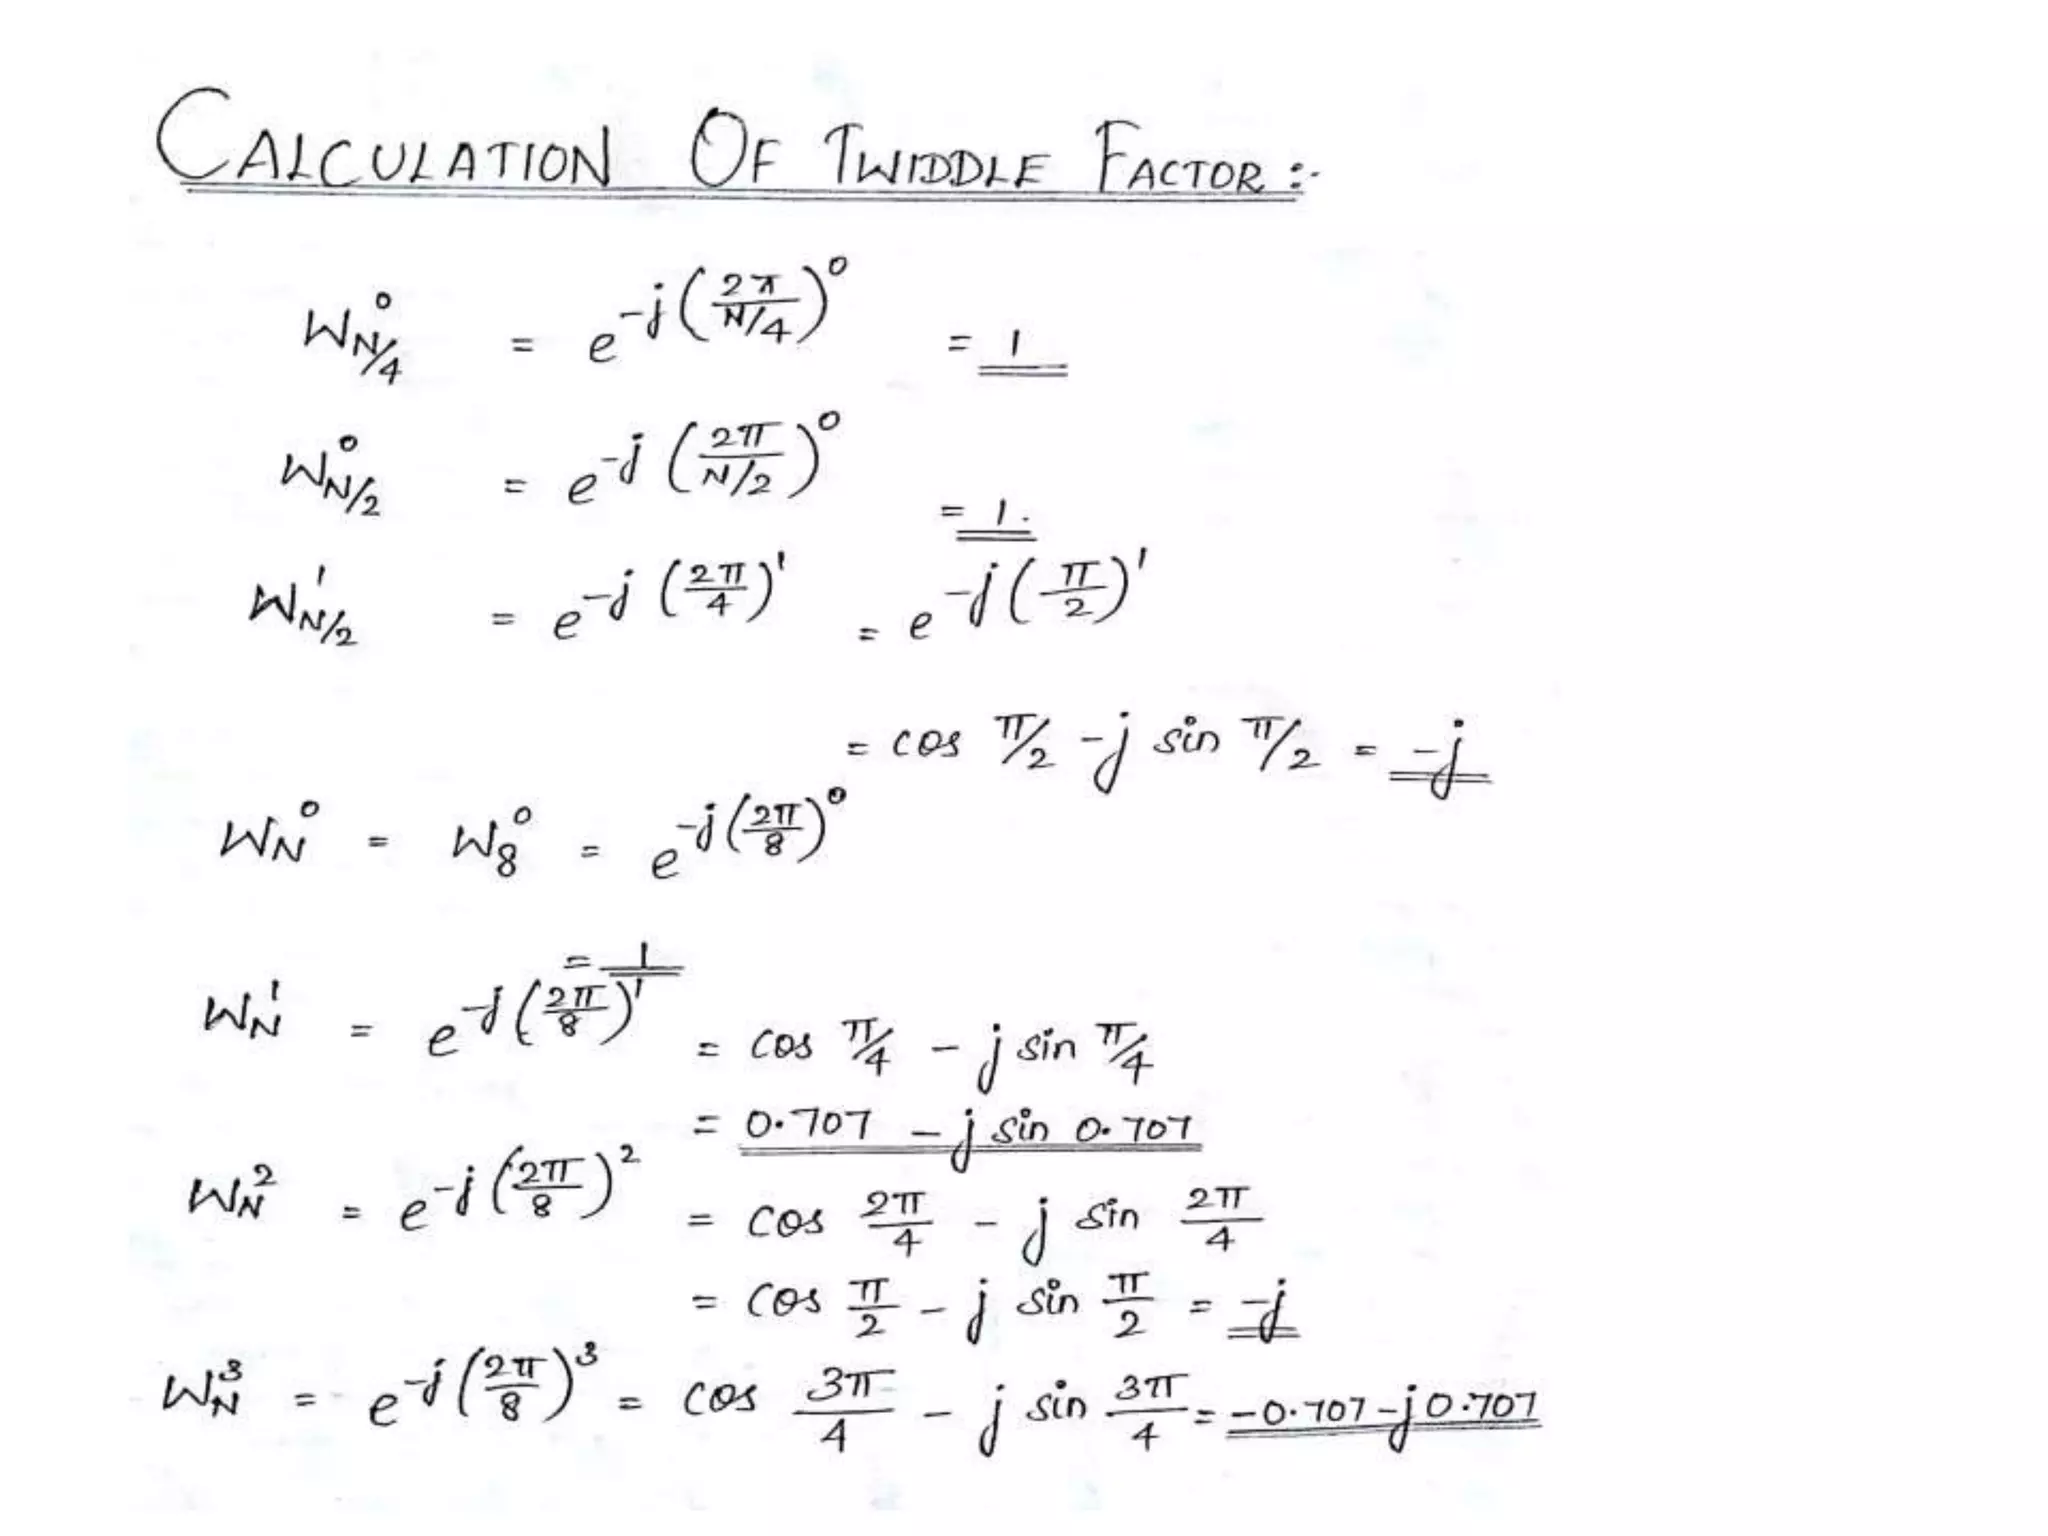 CALCULATION OF TWIDDLE FACTOR :-
W_{N/4}^0 = e^{-j(2π/N/4)^0} = 1
W_{N/2}^0 = e^{-j(2π/N/2)^0} = 1.
W_{N/2}^1 = e^{-j(2π/4)^1} = e^{-j(π/2)^1}
= cos π/2 - j sin π/2 = -j
W_N^0 = W_8^0 = e^{-j(2π/8)^0}
= 1
W_N^1 = e^{-j(2π/8)^1} = cos π/4 - j sin π/4
= 0.707 - j sin 0.707
W_N^2 = e^{-j(2π/8)^2} = cos 2π/4 - j sin 2π/4
= cos π/2 - j sin π/2 = -j
W_N^3 = e^{-j(2π/8)^3} = cos 3π/4 - j sin 3π/4 = -0.707 - j 0.707